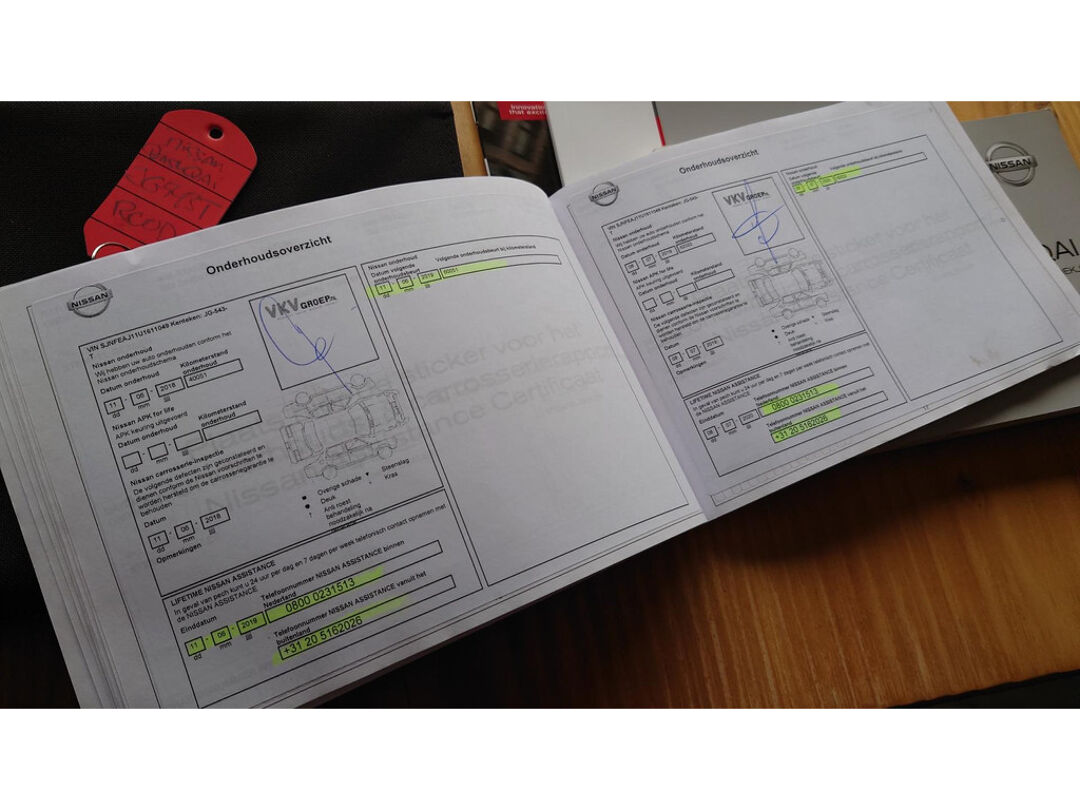 NISSAN
QASHQAI
JG-543-T
ROOD
Innovation
that excites
NISSAN
Onderhoudsoverzicht
NISSAN
VIN SJNFEAJ11U1611049 Kenteken: JG-543-
T
Nissan onderhoud
Wij hebben uw auto onderhouden conform het
Nissan onderhoudschema
Datum onderhoud
Kilometerstand
onderhoud
11 - 06 - 2018
40051
dd mm jjjj
Nissan APK for life
APK keuring uitgevoerd
Datum onderhoud
Kilometerstand
onderhoud
dd mm jjjj
Nissan carrosserie-inspectie
De volgende defecten zijn geconstateerd en
dienen conform de Nissan voorschriften te
worden hersteld om de carrosseriegarantie te
behouden
Datum
11 - 06 - 2018
dd mm jjjj
Opmerkingen
VKV GROEP.NL
Overige schade
Deuk
Anti roest
behandeling
noodzakelijk na
Steenslag
Kras
LIFETIME NISSAN ASSISTANCE
In geval van pech kunt u 24 uur per dag en 7 dagen per week telefonisch contact opnemen met
de NISSAN ASSISTANCE
Einddatum
11 - 06 - 2019
dd mm jjjj
Telefoonnummer NISSAN ASSISTANCE binnen
Nederland
0800 0231513
Telefoonnummer NISSAN ASSISTANCE vanuit het
buitenland
+31 20 5162026
Nissan onderhoud
Datum volgende
onderhoudsbeurt
Volgende onderhoudsbeurt bij kilometerstand
11 - 06 - 2019
dd mm jjjj
Onderhoudsoverzicht
NISSAN
VIN SJNFEAJ11U1611049 Kenteken: JG-543-
T
Nissan onderhoud
Wij hebben uw auto onderhouden conform het
Nissan onderhoudschema
Datum onderhoud
Kilometerstand
onderhoud
dd mm jjjj
Nissan APK for life
APK keuring uitgevoerd
Datum onderhoud
Kilometerstand
onderhoud
dd mm jjjj
Nissan carrosserie-inspectie
De volgende defecten zijn geconstateerd en
dienen conform de Nissan voorschriften te
worden hersteld om de carrosseriegarantie te
behouden
Datum
dd mm jjjj
Opmerkingen
VKV GROEP.NL
Overige schade
Deuk
Anti roest
behandeling
noodzakelijk na
Steenslag
Kras
LIFETIME NISSAN ASSISTANCE
In geval van pech kunt u 24 uur per dag en 7 dagen per week telefonisch contact opnemen met
de NISSAN ASSISTANCE
Einddatum
dd mm jjjj
Telefoonnummer NISSAN ASSISTANCE binnen
Nederland
0800 0231513
Telefoonnummer NISSAN ASSISTANCE vanuit het
buitenland
+31 20 5162026
Nissan onderhoud
Datum volgende
onderhoudsbeurt
Volgende onderhoudsbeurt bij kilometerstand
17